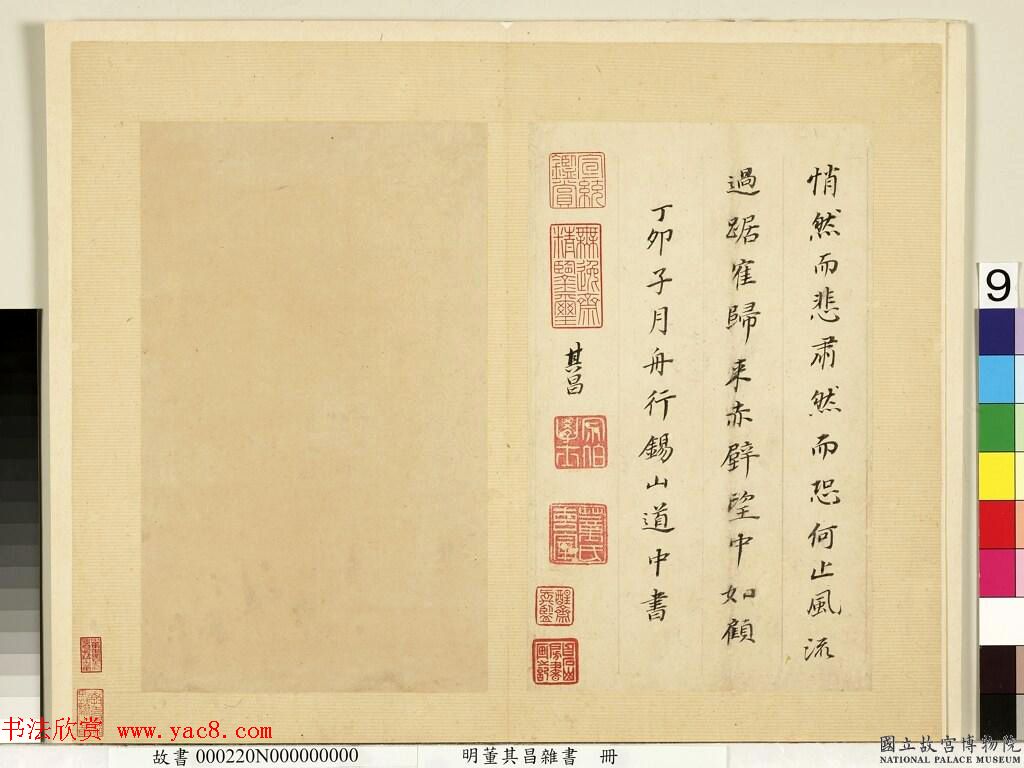 悄然而悲肅然而恐何止風流
過踞寉歸来赤壁望中如顧
丁卯子月舟行錫山道中書
其昌
宣統鑑賞
無逸齋精鑒璽
宗伯學士
董氏玄宰
9
书法欣赏 www.yac8.com
故書 000220N000000000
明董其昌雜書 冊
國立故宮博物院
NATIONAL PALACE MUSEUM